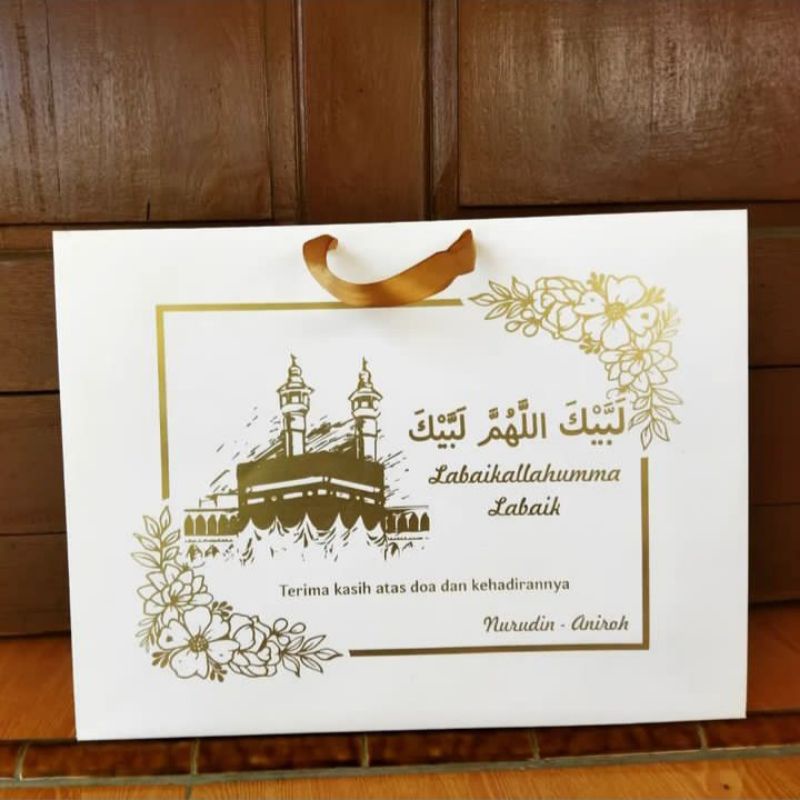 لَبَّيْكَ اللَّهُمَّ لَبَّيْكَ
Labaikallahumma
Labaik
Terima kasih atas doa dan kehadirannya
Nurudin - Aniroh